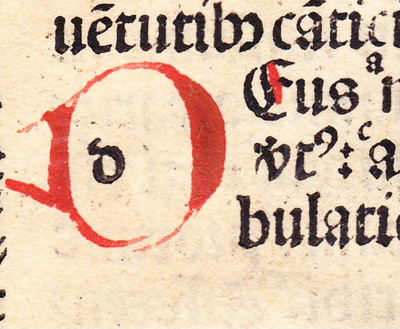 uētutibꝫ cātic
D d Eus a
vt⁹ c a
bulatio